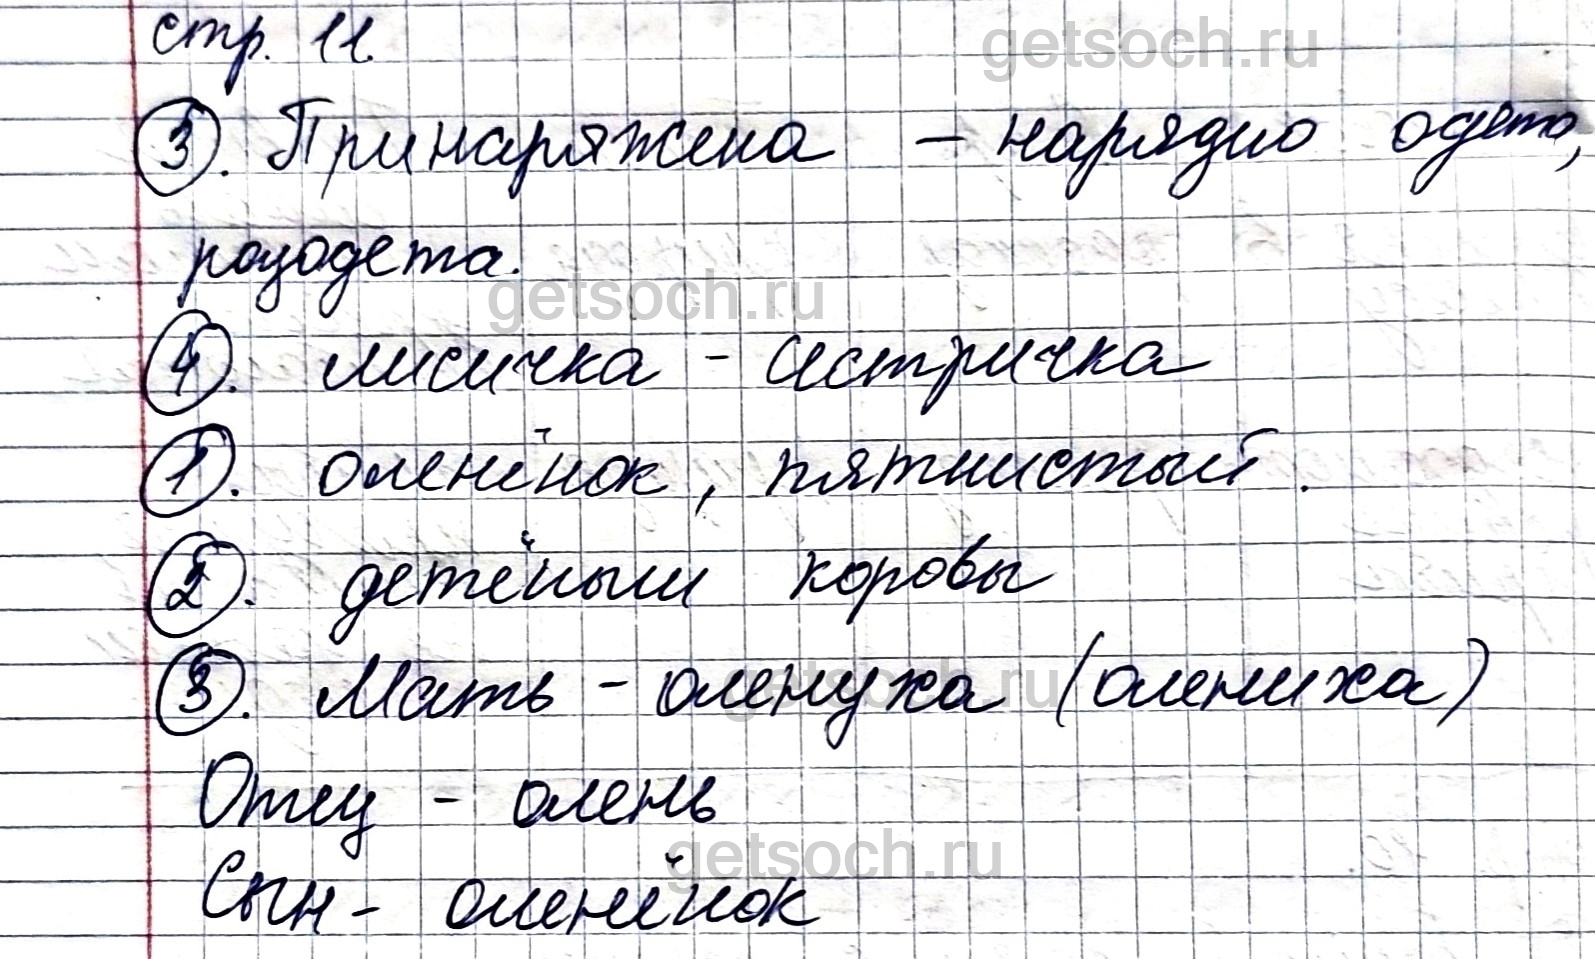 стр. 11.
getsoch.ru
3. Принаряжена - нарядно одета,
разодета.
getsoch.ru
4. лисичка - систричка
1. оленёнок, пятнистый.
2. детёныш коровы
3. Мать - оленуха (олениха)
getsoch.ru
Отец - олень
getsoch.ru
Сын - оленёнок